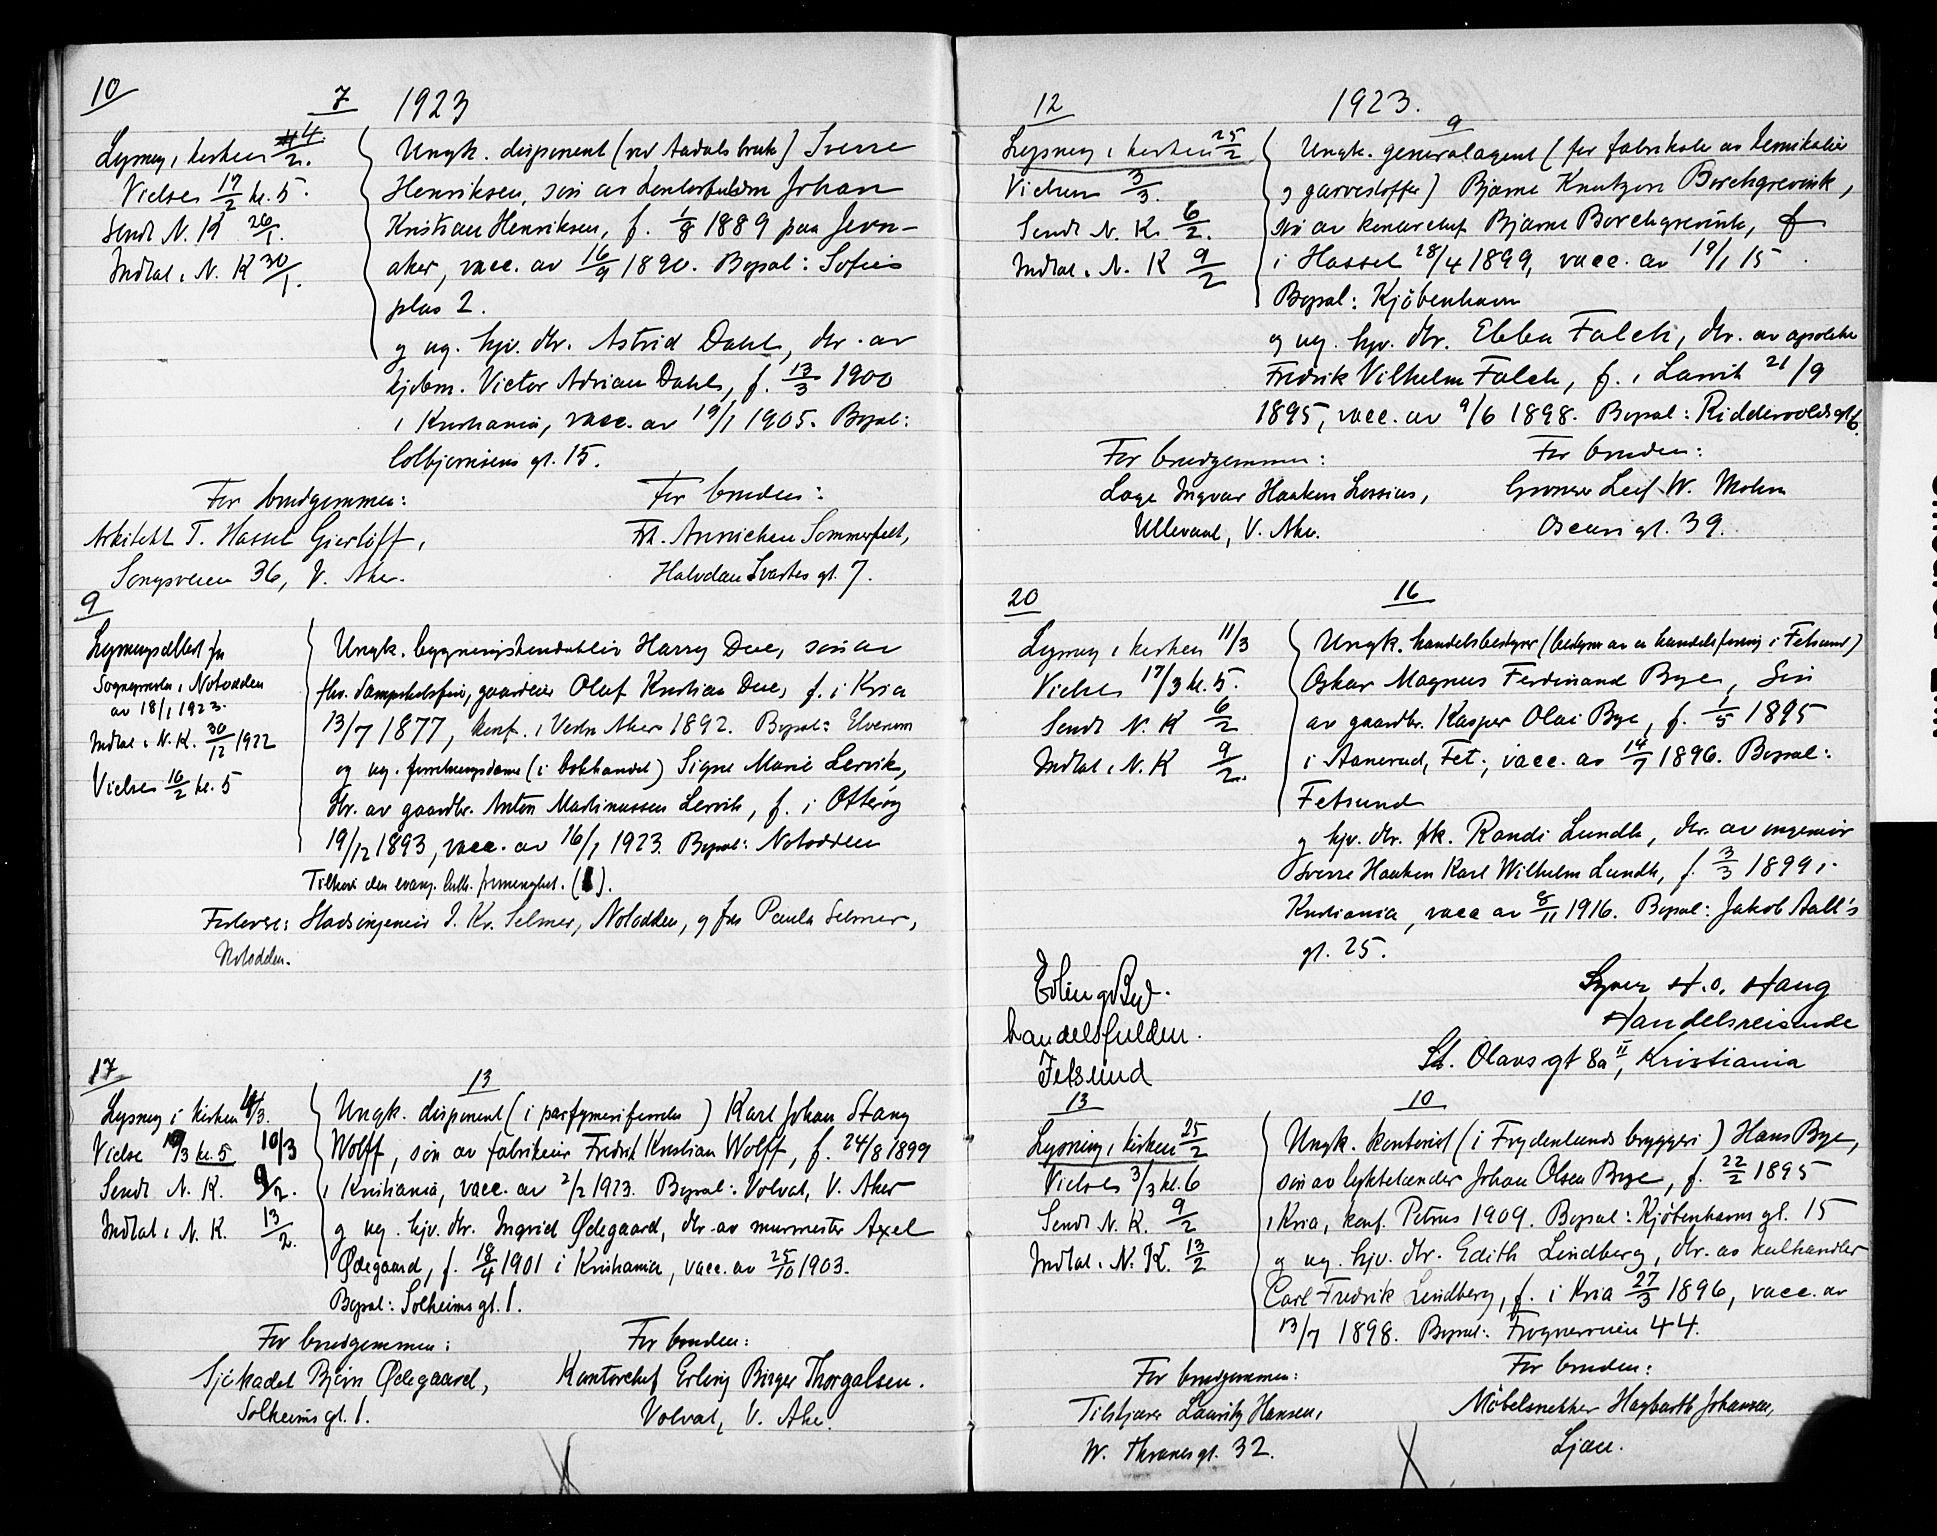 10
7 1923
Lysning i kirken 4/2.
Vielse 17/2 kl. 5.
Sendt N. K 26/1.
Indtat i N. K 30/1.
Ungk. disponent (ved Aadals bruk) Sverre
Henriksen, søn av Johan
Kristian Henriksen, f. 1/8 1889 paa Jevn-
aker, vacc. av 16/9 1890. Bopæl: Sofies
plas 2.
og ug. hjv. dtr. Astrid Dahl, dtr. av
kjøbm. Victor Adrian Dahl, f. 13/3 1900
i Kristiania, vacc. av 19/1 1905. Bopæl:
Colbjørnsens gt. 15.
For brudgommen:
Arkitekt T. Hassel Gierløff,
Songsveien 36, V. Aker.
For bruden:
Frk. Annichen Sommerfelt,
Halvdan Svartes gt. 7.
9
Lysningsattest fra
Sognepresten i Notodden
av 18/1 1923.
Indtat i N. K. 30/12 1922
Vielse 16/2 kl. 5
Ungk. Harry Due, søn av
fhv. gaardeier Olaf Kristian Due, f. i Kria
13/7 1877, konf. i Vestre Aker 1892. Bopæl: Elverum
og ug. forretningsdame (i bokhandel) Signe Marie Lervik,
dtr. av gaardbr. Anton Martinussen Lervik, f. i Otterøy
19/12 1893, vacc. av 16/1 1923. Bopæl: Notodden
Tilhører den evang. luth. (1).
Forlovere: Stadsingeniør J. Kr. Selmer, Notodden, og fru Paula Selmer,
Notodden.
17
13
Lysning i kirken 4/3.
Vielse 10/3 kl. 5 10/3
Sendt N. K. 9/2.
Indtat i N. K. 13/2.
Ungk. disponent (i parfymeriforretn.) Karl Johan Stang
Wolff, søn av fabrikeier Fredrik Kristian Wolff, f. 24/8 1899
i Kristiania, vacc. av 2/2 1923. Bopæl: Volvat, V. Aker
og ug. hjv. dtr. Ingrid Ødegaard, dtr. av murmester Axel
Ødegaard, f. 18/4 1901 i Kristiania, vacc. av 25/10 1903.
Bopæl: Solheims gt. 1.
For brudgommen:
Sjøkadet Bjørn Ødegaard,
Solheims gt. 1.
For bruden:
Kontorchef Erling Birger Thorgalsen.
Volvat, V. Aker.
12
1923.
9
Lysning i kirken 25/2
Vielsen 3/3.
Sendt N. K. 6/2.
Indtat i N. K 9/2
Ungk. generalagent (for fabrikater av kemikalier
og garvestoffer) Bjarne Knutzon Borchgrevink,
søn av kontorchef Bjarne Borchgrevink, f
i Hassel 28/4 1899, vacc. av 19/1 15.
Bopæl: Kjøbenhavn
og ug. hjv. dtr. Ebba Falch, dtr. av apoteker
Fredrik Vilhelm Falch, f. i Larvik 21/9
1895, vacc. av 9/6 1898. Bopæl: Riddervolds gt 6.
For brudgommen:
Læge Ingvar Haaken Lossius,
Ullevaal, V. Aker.
For bruden:
Grosserer Leif W. Mohn
Oscars gt. 39.
20
16
Lysning i kirken 11/3
Vielse 17/3 kl. 5.
Sendt N. K 6/2
Indtat i N. K 9/2.
Ungk. handelsbestyrer (bestyrer av en handelsforening i Fetsund)
Oskar Magnus Ferdinand Bye, søn
av gaardbr. Kasper Olai Bye, f. 1/5 1895
i Aanerud, Fet, vacc. av 14/7 1896. Bopæl:
Fetsund
og hjv. dtr. frk. Randi Lundh, dtr. av ingeniør
Sverre Haaken Karl Wilhelm Lundh, f. 3/3 1899 i
Kristiania, vacc av 8/11 1916. Bopæl: Jakob Aall's
gt. 25.
Erling Bye.
handelsfuldm.
Fetsund
Syver H. O. Haug
Handelsreisende
St. Olavs gt 8a II, Kristiania
13
10
Lysning i kirken 25/2
Vielse 3/3 kl. 6
Sendt N. K. 9/2
Indtat i N. K. 13/2
Ungk. kontorist (i Frydenlunds bryggeri) Hans Bye,
søn av lyktetænder Johan Olsen Bye, f. 22/2 1895
i Kria, konf. Petrus 1909. Bopæl: Kjøbenhavns gt. 15
og ug. hjv. dtr. Edith Lindberg, dtr. av kulhandler
Carl Fredrik Lindberg, f. i Kria 27/3 1896, vacc. av
13/7 1898. Bopæl: Frognerveien 44.
For brudgommen:
Tilskjærer Lauritz Hansen,
W. Thranes gt. 32.
For bruden:
Møbelsnekker Hagbarth Johansen,
Ljan.